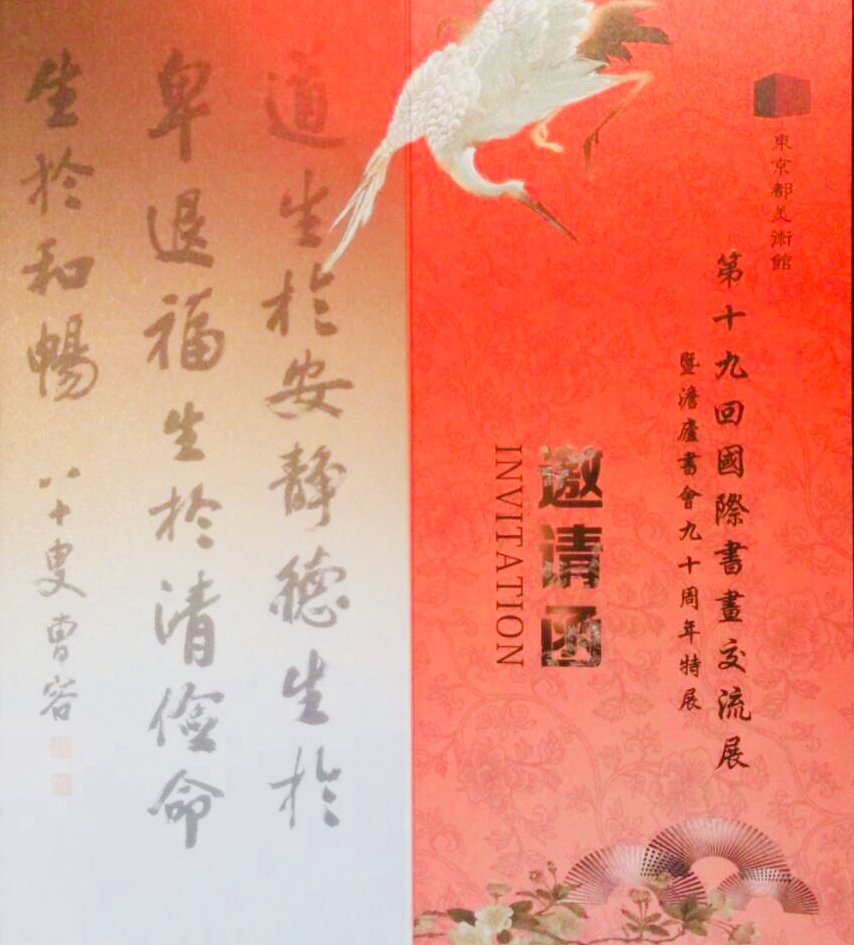 東京都美術館
第十九回國際書畫交流展
暨澹廬書會九十周年特展
邀请函
INVITATION
道生於安靜德生於
卑退福生於清儉命
生於和暢
八十叟曹容